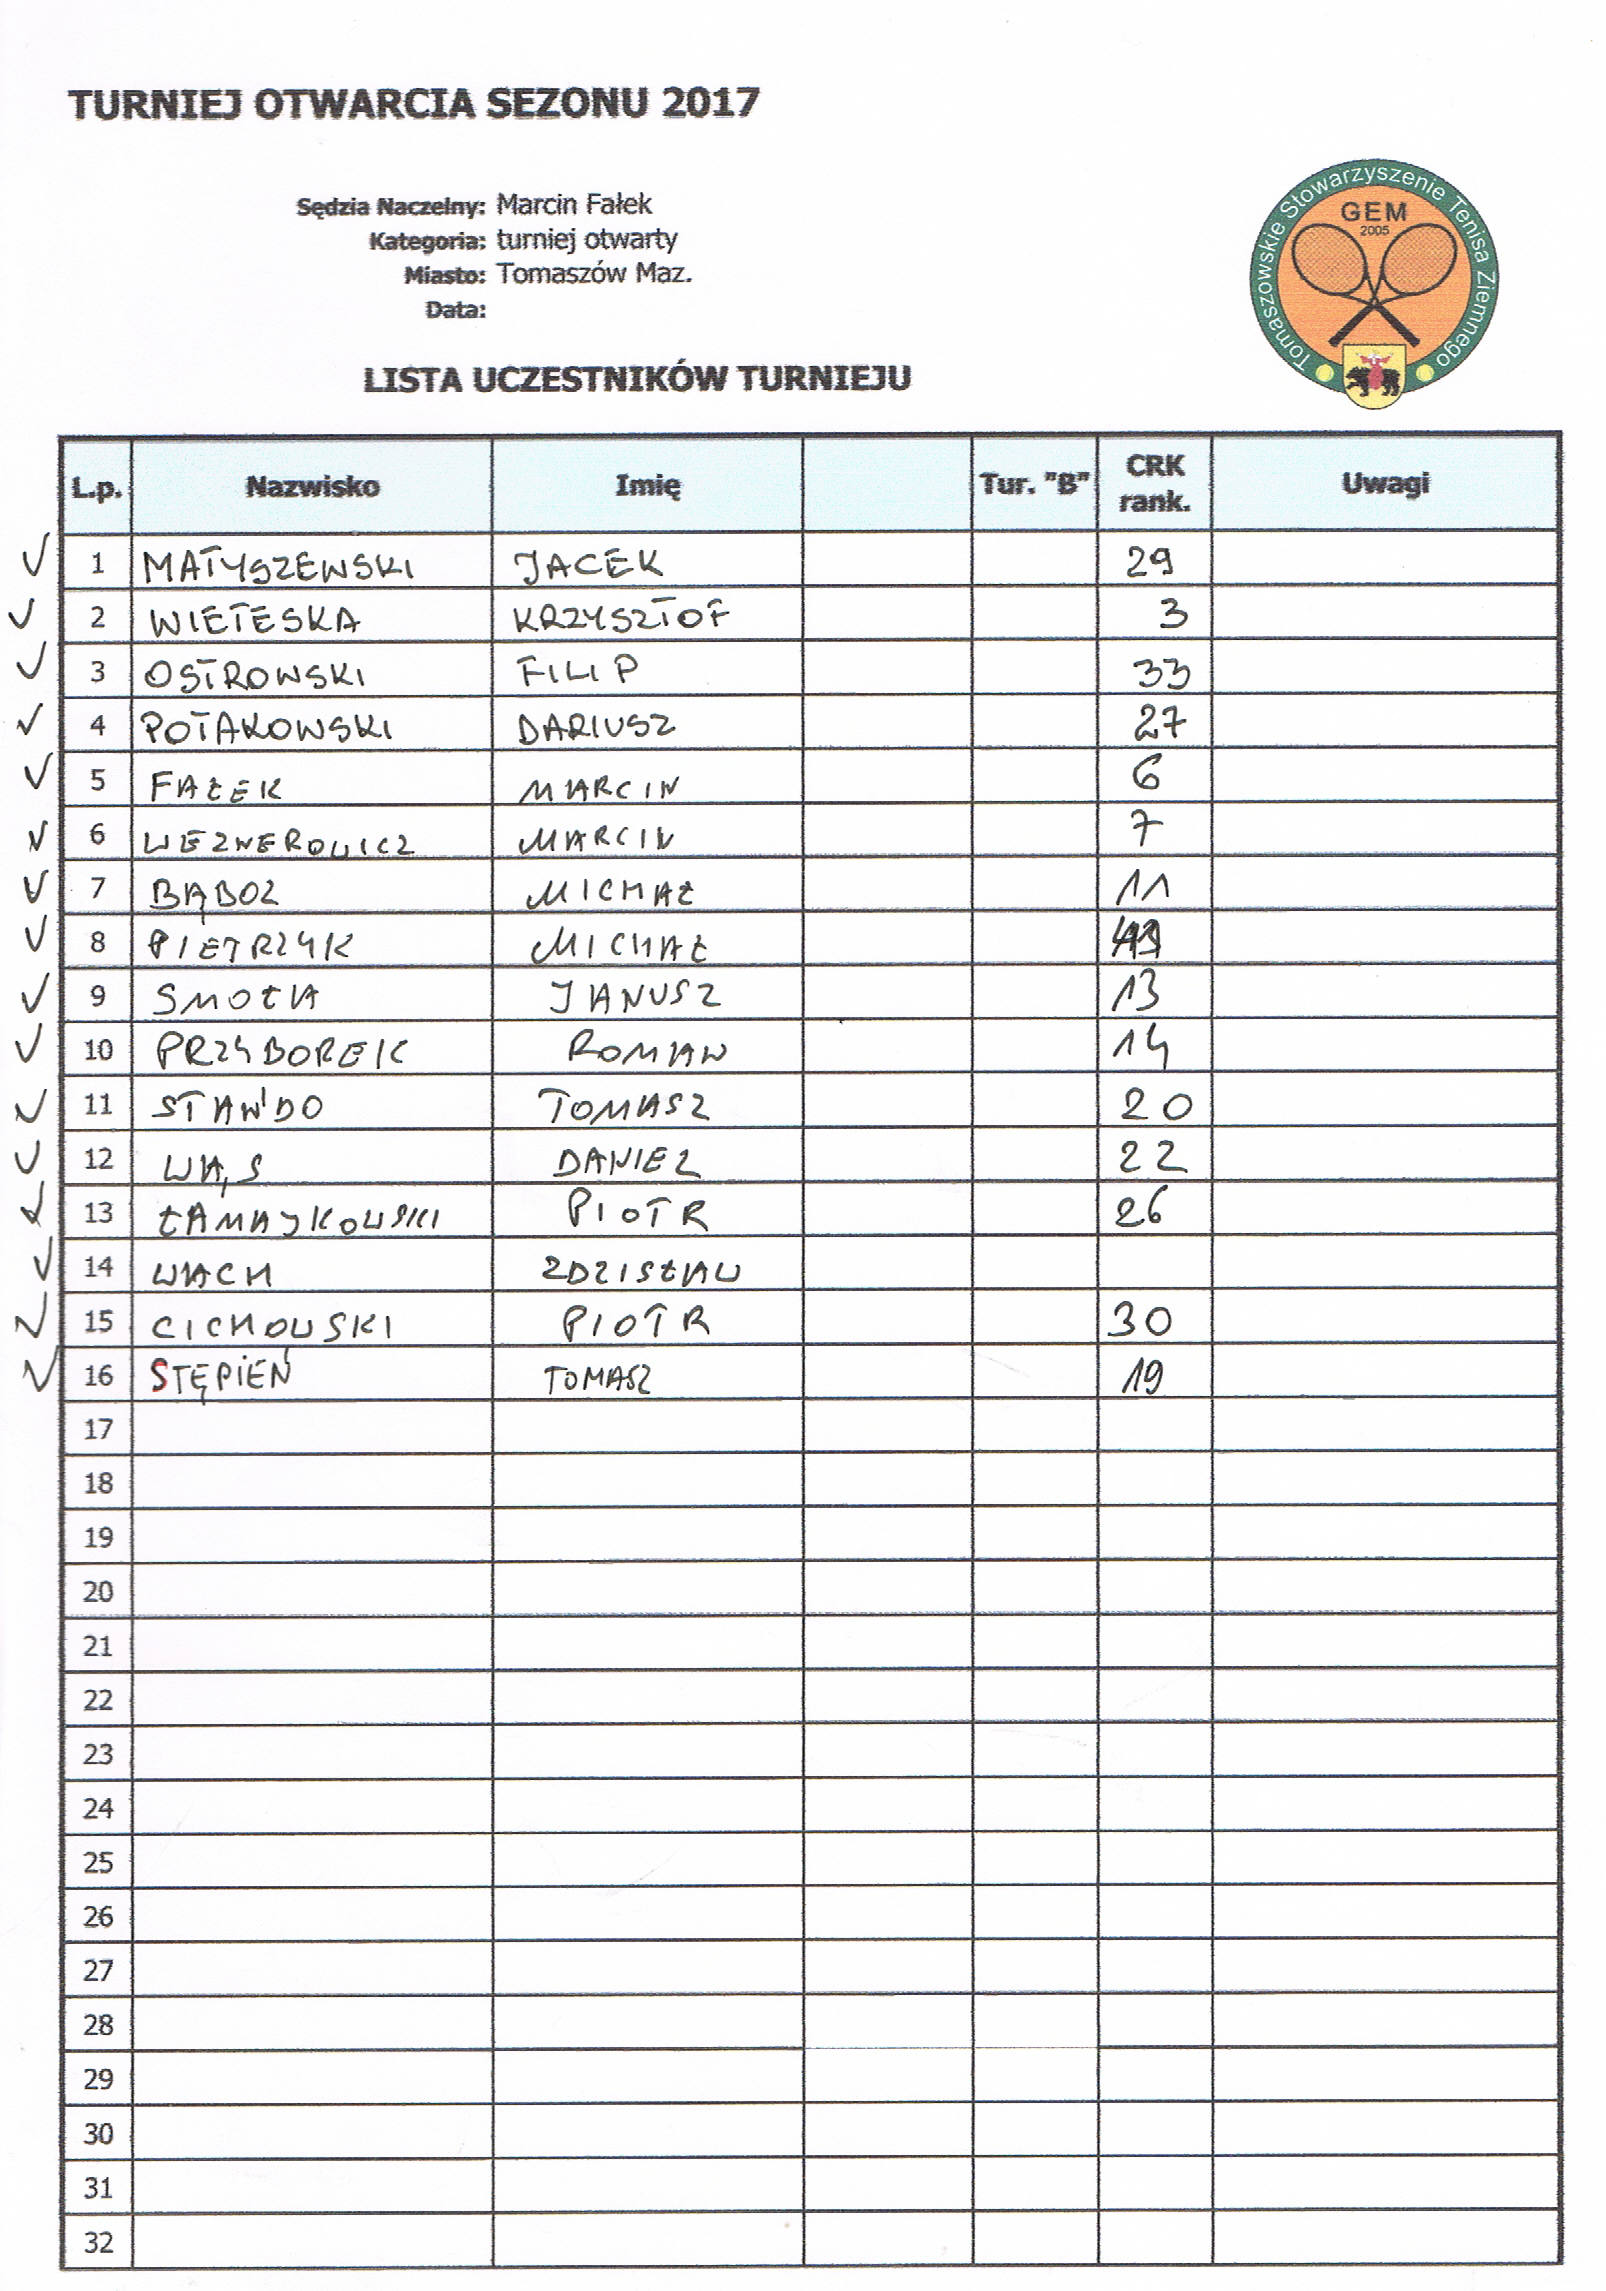 TURNIEJ OTWARCIA SEZONU 2017
Sędzia Naczelny: Marcin Fałek
Kategoria: turniej otwarty
Miasto: Tomaszów Maz.
Data:
Tomaszowskie Stowarzyszenie Tenisa Ziemnego
GEM
2005
LISTA UCZESTNIKÓW TURNIEJU
L.p. Nazwisko Imię Tur. "B" CRK rank. Uwagi
1 MATYSZEWSKI JACEK 29
2 WIETESKA KRZYSZTOF 3
3 OSTROWSKI FILIP 33
4 POTAKOWSKI DARIUSZ 27
5 FAŁEK MARCIN 6
6 WEZNEROWICZ MARCIN 7
7 BĄBOL MICHAŁ 11
8 PIETRZYK MICHAŁ
9 SMOŁA JANUSZ 13
10 PRZYBOREK ROMAN 14
11 STAŃDO TOMASZ 20
12 WĄS DANIEL 22
13 PIOTR 26
14 WACH ZDZISŁAW
15 CICHOWSKI PIOTR 30
16 STĘPIEŃ TOMASZ 19
17
18
19
20
21
22
23
24
25
26
27
28
29
30
31
32